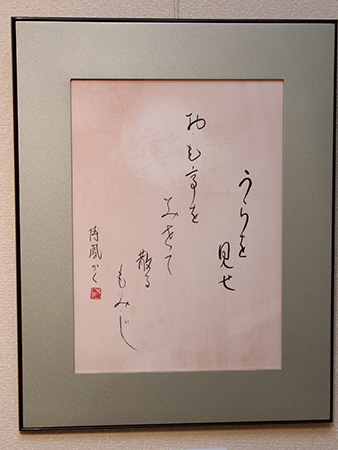 うらを見せ
おもてを
みせて
散る
もみじ
かく